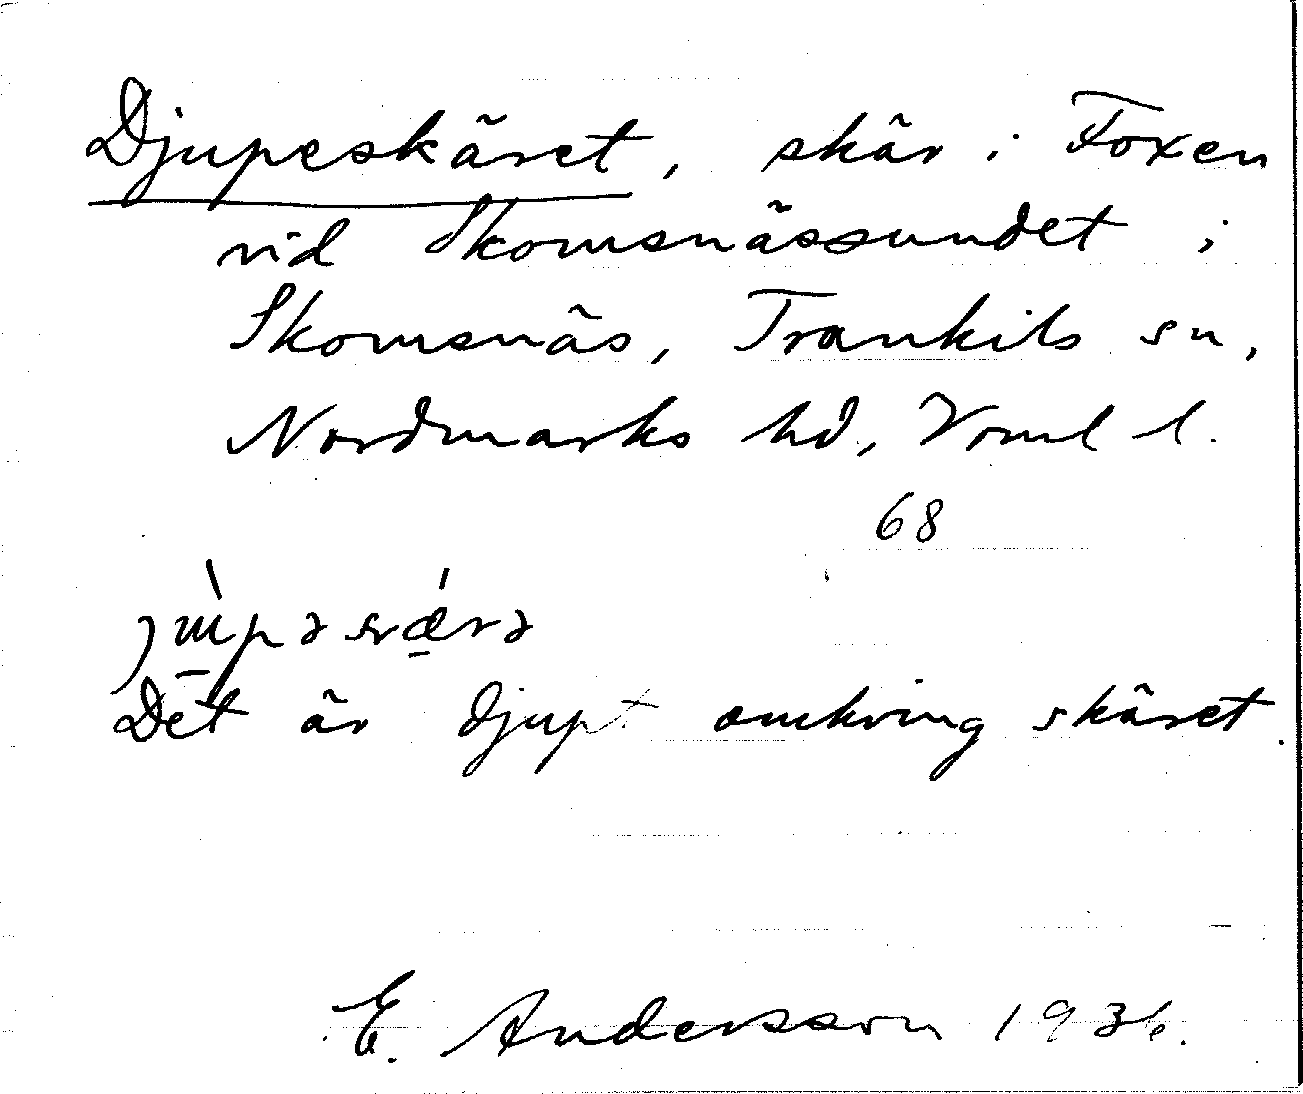 Djupeskäret, skär i Foxen
vid Skomsnässundet i
Skomsnäs, Trankils sn,
Nordmarks hd, Vrml l.
68
Det är djupt omkring skäret.
E. Andersson 1936.